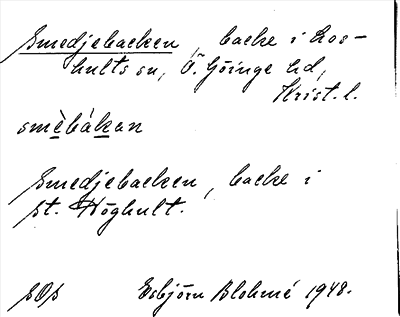 Smedjebacken, backe i Los-
hults sn, Ö. Göinge hd,
Krist. l.
smèbákan
Smedjebacken, backe i
st. Höghult.
SOS Esbjörn Blohmé 1948.